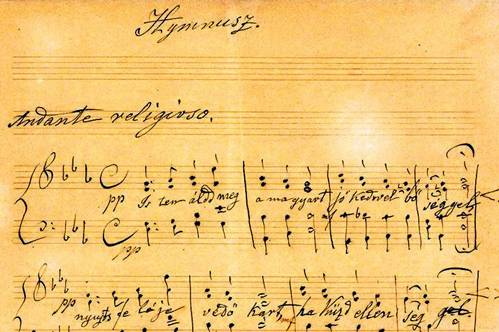 Hymnusz.
Andante religioso.
pp Is ten áldd meg a magyart jó kedvvel bő séggel
pp
pp nyujts fe lé je védő kart, ha küzd ellen seg gel